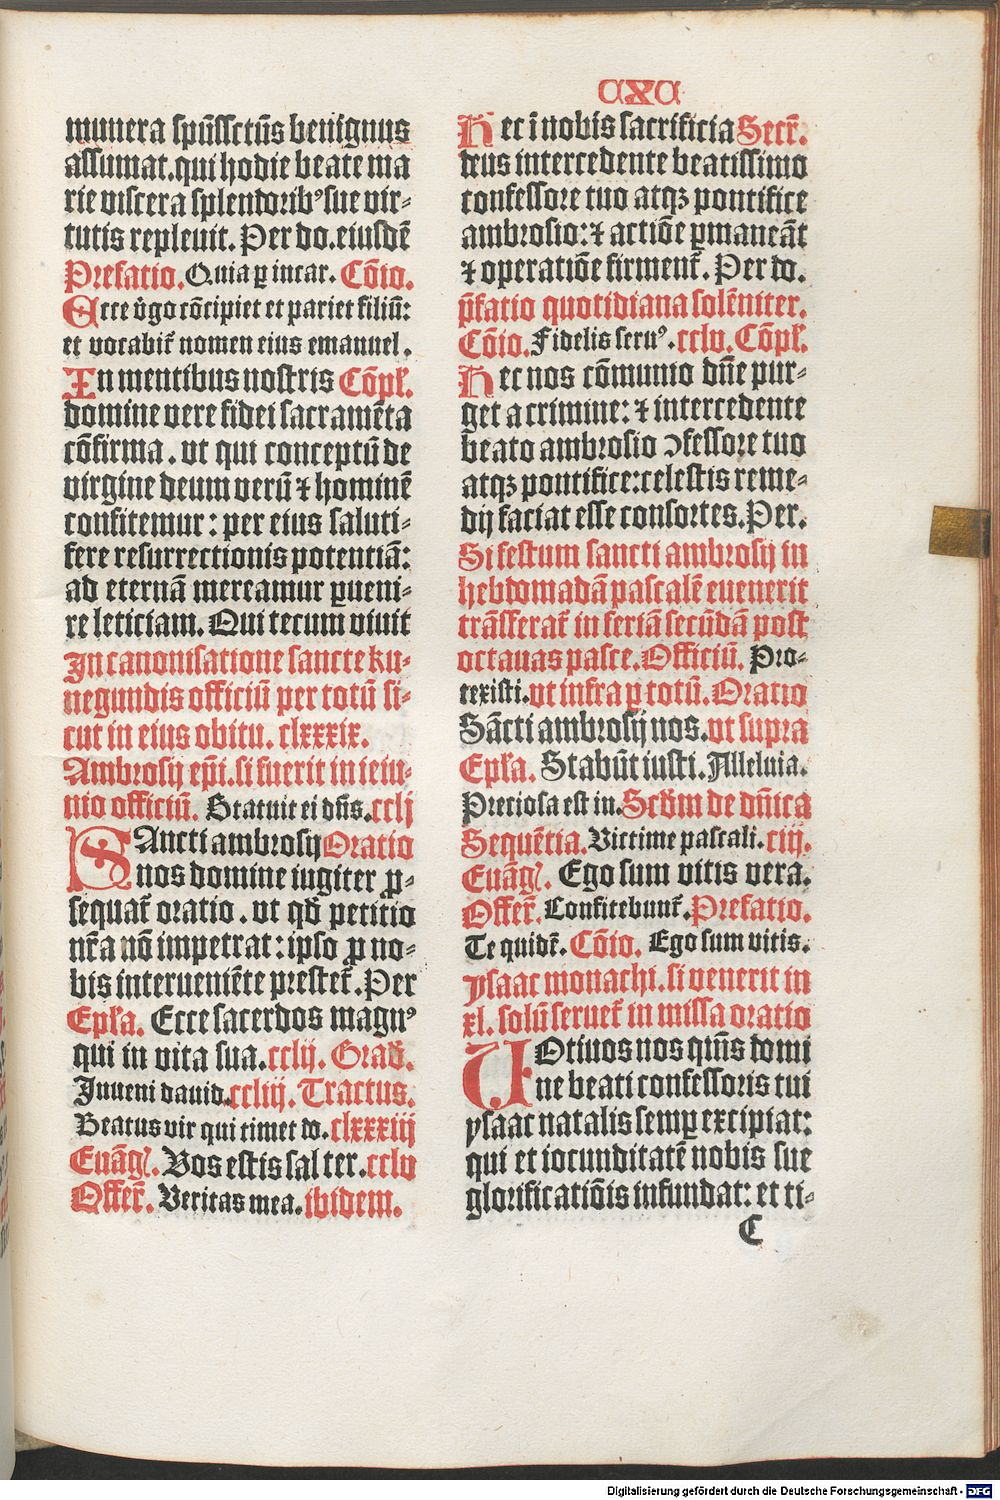 CXC
munera spūssctūs benignus
assumat.qui hodie beate ma
rie viscera splendoribꝰ sue vir⸗
tutis repleuit. Per do.eiusdē
Prefatio. Quia ꝑ incar. Cōio.
Ecce v̄go cōcipiet et pariet filiū:
et vocabit᷑ nomen eius emanuel.
In mentibus nostris Cōpl̄.
domine vere fidei sacramēta
cōfirma. vt qui conceptū de
virgine deum verū ⁊ hominē
confitemur: per eius saluti⸗
fere resurrectionis potentiā:
ad eternā mereamur ꝑueni⸗
re leticiam. Qui tecum viuit
In canonisatione sancte ku⸗
negundis officiū per totū si⸗
cut in eius obitu. clxxxix.
Ambrosij ep̄i. si fuerit in ieiu⸗
nio officiū. Statuit ei dn̄s. cclj
SAncti ambrosij Oratio
nos domine iugiter ꝓ⸗
sequat᷑ oratio. vt qd̄ petitio
nr̄a nō impetrat: ipso ꝓ no⸗
bis interueniēte prestet᷑. Per
Epl̄a. Ecce sacerdos magnꝰ
qui in vita sua. cclij. Grad̄.
Inueni dauid. ccliij. Tractus.
Beatus vir qui timet do. clxxxiij
Euāgl̄. Vos estis sal ter. cclv
Offer̄. Veritas mea. ibidem.
Hec ī nobis sacrificia Secr̄.
deus intercedente beatissimo
confessore tuo atqꝫ pontifice
ambrosio: ⁊ actiōe ꝑmaneāt
⁊ operatiōe firment᷑. Per do.
p̄fatio quotidiana solēniter.
Cōio. Fidelis seruꝰ. cclv. Cōpl̄.
Hec nos cōmunio dn̄e pur⸗
get a crimine: ⁊ intercedente
beato ambrosio ꝯfessore tuo
atqꝫ pontifice: celestis reme⸗
dij faciat esse consortes. Per.
Si festum sancti ambrosij in
hebdomadā pascalē euenerit
trāsferat᷑ in feriā secūdā post
octauas pasce. Officiū. Pro⸗
texisti. vt infra ꝑ totū. Oratio
Sācti ambrosij nos. vt supra
Epl̄a. Stabūt iusti. Alleluia.
Preciosa est in. Scd̄m de dn̄ica
Sequētia. Victime pascali. ciij.
Euāgl̄. Ego sum vitis vera.
Offer̄. Confitebunt᷑. Prefatio.
Te quidē. Cōio. Ego sum vitis.
ysaac monachi. si venerit in
xl. solū seruet᷑ in missa oratio
VOtiuos nos qm̄s domi
ne beati confessoris tui
ysaac natalis semꝑ excipiat:
qui et iocunditatē nobis sue
glorificatiōis infundat: et ti⸗
C
Digitalisierung gefördert durch die Deutsche Forschungsgemeinschaft - DFG